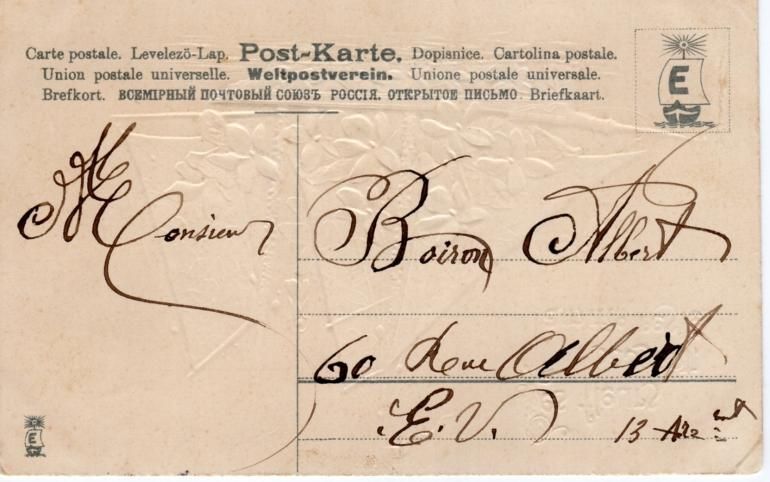 Carte postale. Levelezö-Lap. Post-Karte. Dopisnice. Cartolina postale.
Union postale universelle. Weltpostverein. Unione postale universale.
Brefkort. ВСЕМІРНЫЙ ПОЧТОВЫЙ СОЮЗЪ РОССІЯ. ОТКРЫТОЕ ПИСЬМО. Briefkaart.
E
Monsieur Boiron Albert
60 Rue Albert
E. V. 13 Arr.ᵐᵗ
E